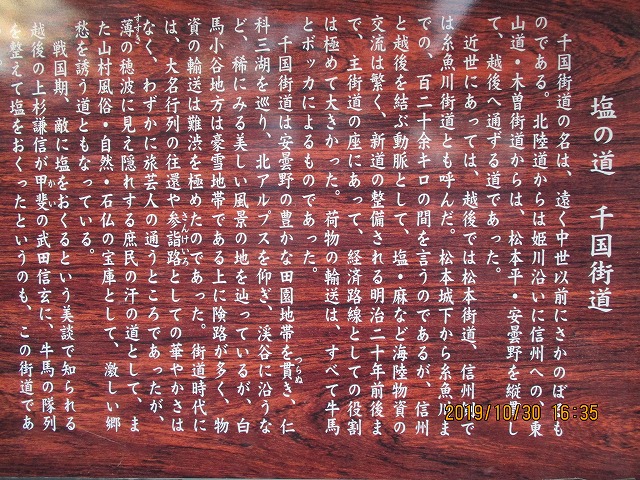 塩の道 千国街道
千国街道の名は、遠く中世以前にさかのぼるも
のである。北陸道からは姫川沿いに信州への道、東
山道・木曽街道からは、松本平・安曇野を縦貫し
て、越後へ通ずる道であった。
近世にあっては、越後では松本街道、信州で
は糸魚川街道とも呼んだ。松本城下から糸魚川ま
での、百二十余キロの間を言うのであるが、信州
と越後を結ぶ動脈として、塩・麻など海陸物資の
交流は繁く、新道の整備される明治二十年前後ま
で、主街道の座にあって、経済路線としての役割
は極めて大きかった。荷物の輸送は、すべて牛馬
とボッカによるものであった。
千国街道は安曇野の豊かな田園地帯を貫き、仁
つらぬ
科三湖を巡り、北アルプスを仰ぎ、渓谷に沿うな
ど、稀にみる美しい風景の地を辿っているが、白
馬小谷地方は豪雪地帯である上に険路が多く、物
資の輸送は難渋を極めたのであった。街道時代に
は、大名行列の往還や参詣路としての華やかさは
さんけいろ
なく、わずかに旅芸人の通うところであったが、
薄の穂波に見え隠れする庶民の汗の道として、ま
すすき
た山村風俗・自然・石仏の宝庫として、激しい郷
愁を誘う道ともなっている。
戦国期、敵に塩をおくるという美談で知られる
越後の上杉謙信が甲斐の武田信玄に、牛馬の隊列
かい
を整えて塩をおくったというのも、この街道であ
2019/10/30 16:35